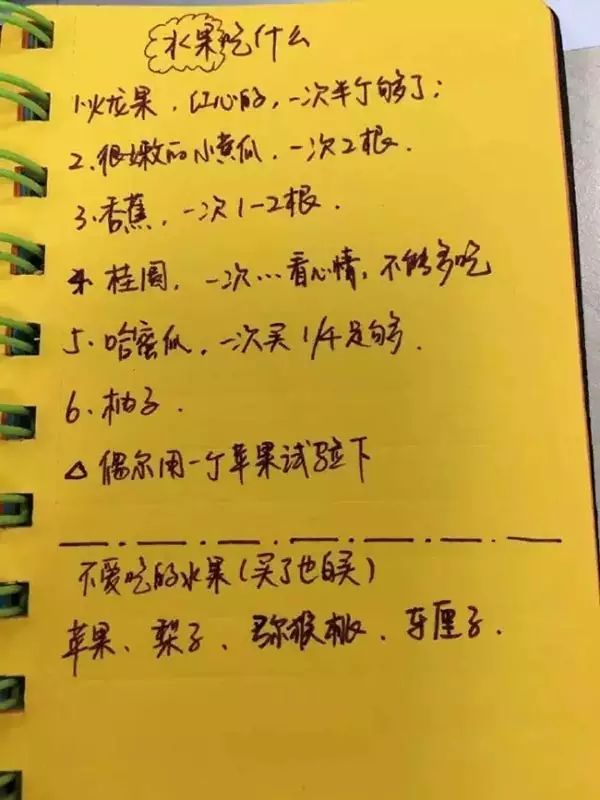 水果吃什么
1.火龙果，红心的，一次半个够了；
2.很嫩的小黄瓜，一次2根.
3.香蕉，一次1-2根.
4.桂圆，一次…看心情，不能多吃
5.哈密瓜，一次买1/4足够.
6.柚子.
△偶尔用一个苹果试验下
不爱吃的水果(买了也白买)
苹果、梨子、猕猴桃、车厘子.